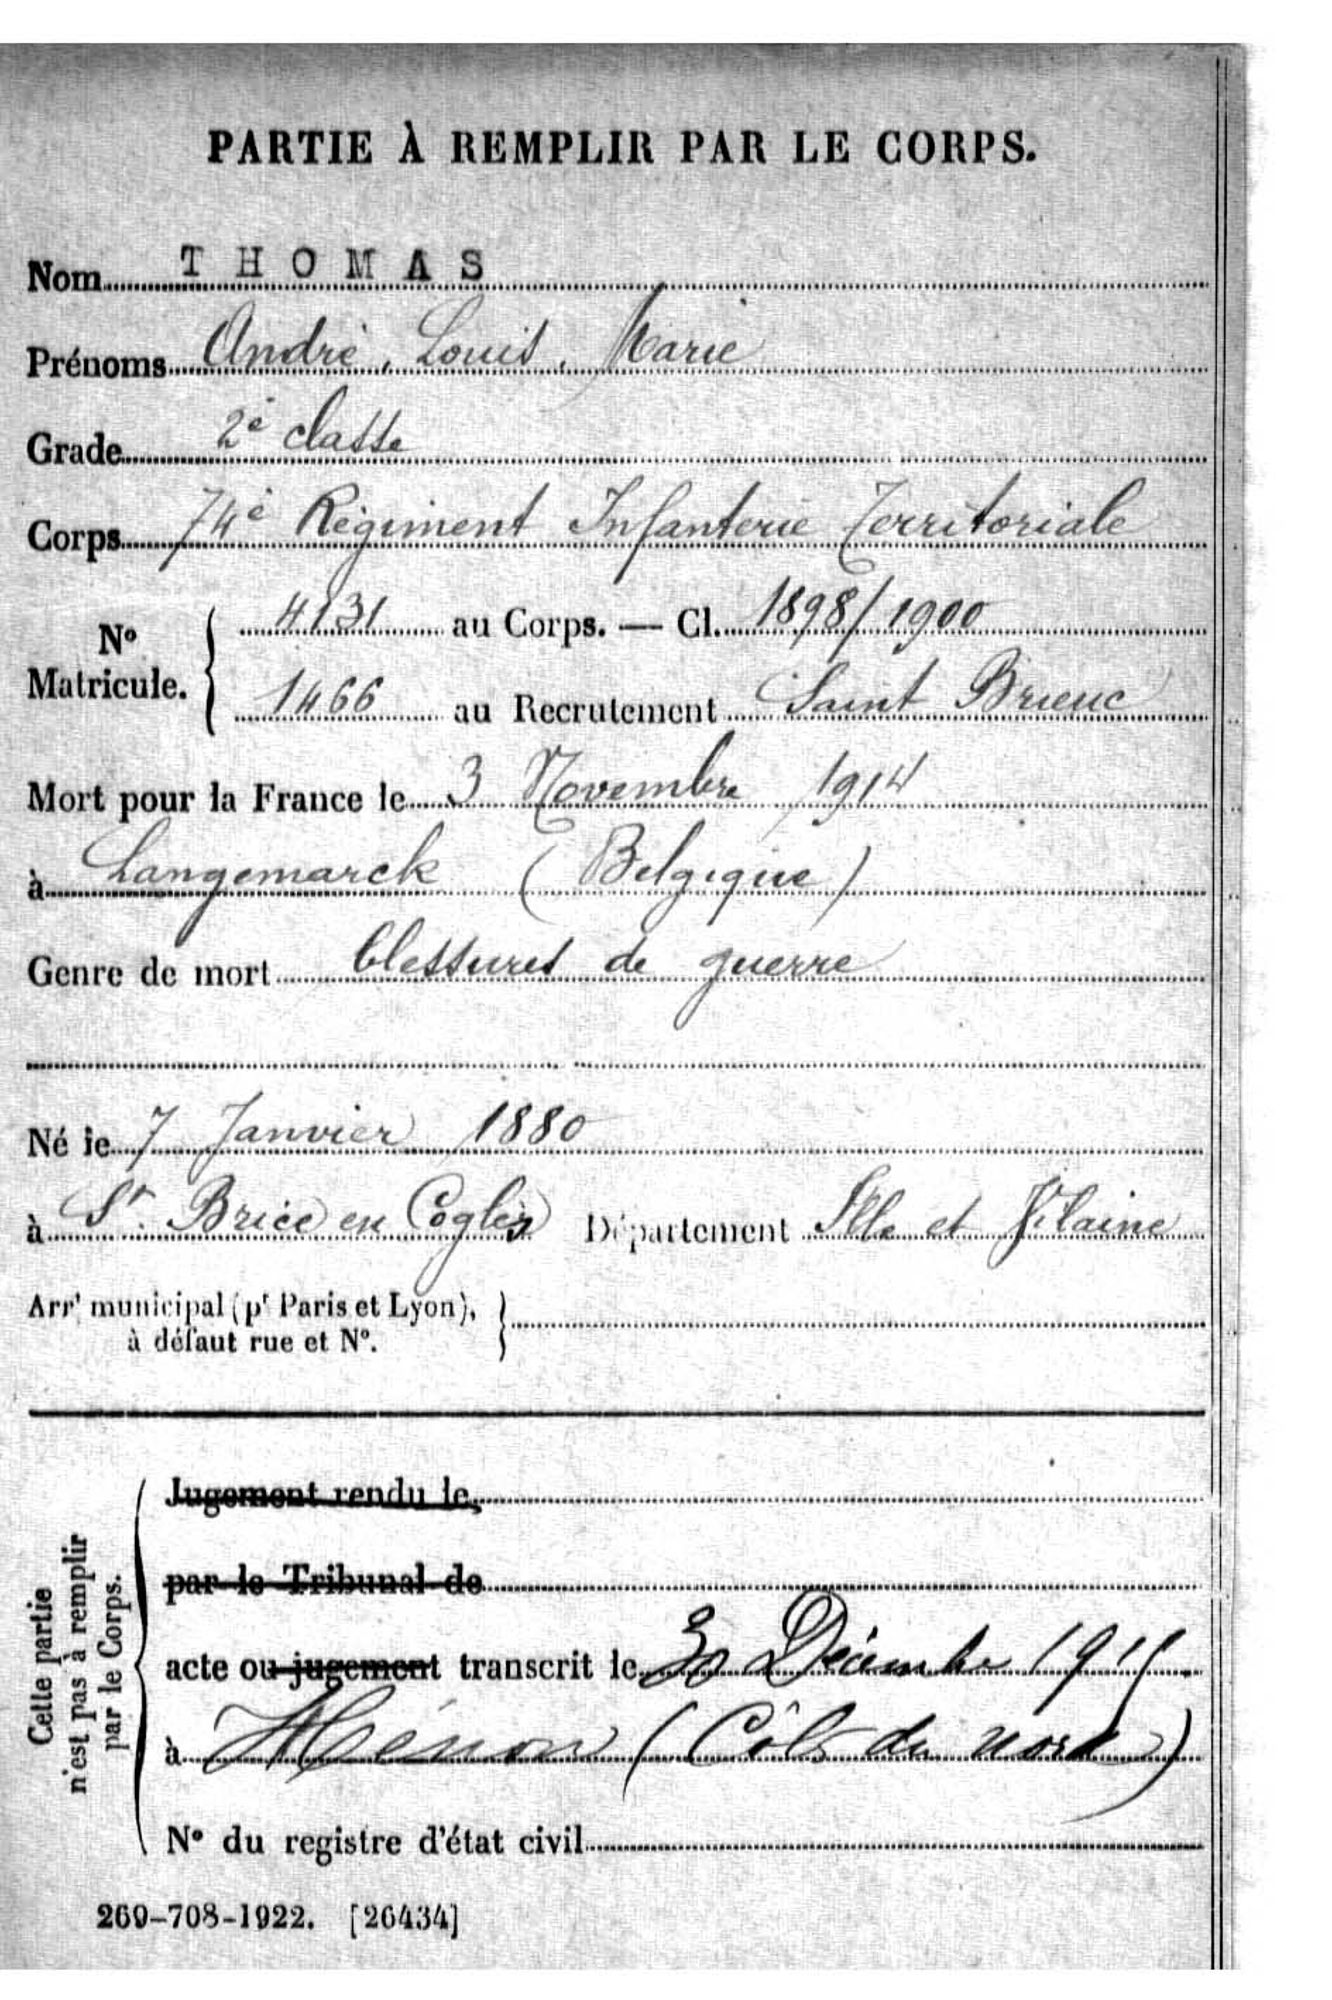 PARTIE À REMPLIR PAR LE CORPS.
Nom THOMAS
Prénoms André, Louis, Marie
Grade 2è classe
Corps 74è Régiment Infanterie Territoriale
N° Matricule. 4131 au Corps. — Cl. 1898/1900
1466 au Recrutement Saint Brieuc
Mort pour la France le 3 Novembre 1914
à Langemarck (Belgique)
Genre de mort blessures de guerre
Né le 7 Janvier 1880
à St. Brice en Coglès Département Ille et Vilaine
Arrt municipal (pr Paris et Lyon),
à défaut rue et N°.
Cette partie
n'est pas à remplir
par le Corps.
Jugement rendu le,
par le Tribunal de
acte ou jugement transcrit le 30 Décembre 1915.
à Hénon (Côtes du nord)
N° du registre d'état civil
269-708-1922. [26434]